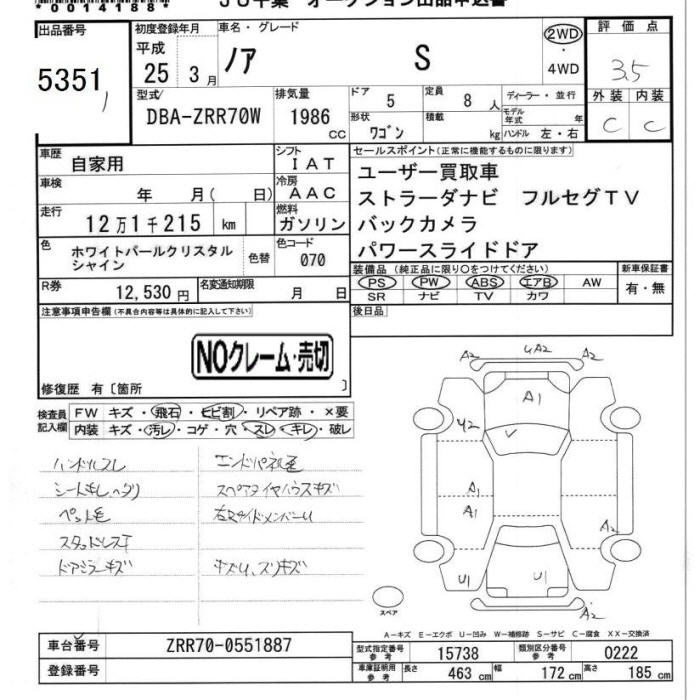 *0014188*
JU千葉 オークション出品申込書
出品番号 初度登録年月 車名・グレード 2WD 評価点
5351 平成 25 3月 ノア S 4WD 3.5
型式 排気量 ドア 5 定員 8人 ディーラー・並行 外装 内装
DBA-ZRR70W 1986 CC 形状 ワゴン 積載 kg モデル年式 年 ハンドル 左・右 C C
車歴 自家用 シフト IAT セールスポイント(正常に機能するものに限ります)
車検 年 月( 日) 冷房 AAC ユーザー買取車
走行 12万1千215 km 燃料 ガソリン ストラーダナビ フルセグTV
色 ホワイトパールクリスタルシャイン 色替 色コード 070 バックカメラ
パワースライドドア
装備品(純正品に限り○をつけてください) 新車保証書
R券 12,530円 名変通知期限 月 日 PS PW ABS エアB AW 有・無
SR ナビ TV カワ
注意事項申告欄(不具合内容等は具体的に記入して下さい) 後日品
NOクレーム・売切
修復歴 有〔箇所 〕
検査員記入欄 FW キズ・飛石・ヒビ割・リペア跡・×要
内装 キズ・汚レ・コゲ・穴・スレ・キレ・破レ
ハンドルスレ エンドパネル毛
シートキレ、ヘタリ スペアタイヤハウスキズ
ペット毛 右サイドメンバーU
スタッドレスT
ドアミラーキズ キズU、スリキズ
A2 UA2 A2
A1
Y2
A1
A1 A2
U1 U1
A2
スペア
A-キズ E-エクボ U-凹み W-補修跡 S-サビ C-腐食 XX-交換済
車台番号 ZRR70-0551887 型式指定番号 参考 15738 類別区分番号 参考 0222
登録番号 車庫証明用 参考 長さ 463 cm 幅 172 cm 高さ 185 cm